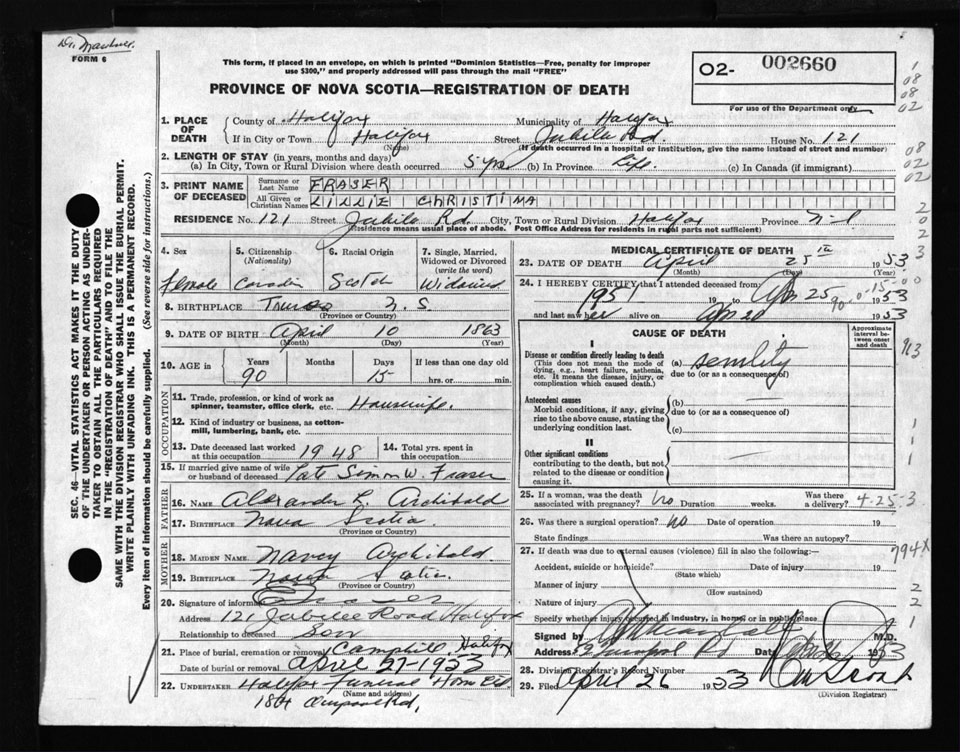 FORM 6
This form, if placed in an envelope, on which is printed "Dominion Statistics—Free, penalty for improper
use $300," and properly addressed will pass through the mail "FREE"
PROVINCE OF NOVA SCOTIA—REGISTRATION OF DEATH
02- 002660
For use of the Department only
1. PLACE OF DEATH
County of Halifax Municipality of Halifax
If in City or Town Halifax Street Jubilee Rd House No. 121
(Name) (If death occurred in a hospital or institution, give the name instead of street and number)
2. LENGTH OF STAY (in years, months and days)
(a) In City, Town or Rural Division where death occurred 5 yrs (b) In Province Life. (c) In Canada (if immigrant)
3. PRINT NAME OF DECEASED
Surname or Last Name FRASER
All Given or Christian Names LILLIE CHRISTINA
RESIDENCE No. 121 Street Jubile Rd. City, Town or Rural Division Halifax Province
Residence means usual place of abode. Post Office Address for residents in rural parts not sufficient)
4. Sex Female
5. Citizenship (Nationality)
6. Racial Origin Scotch
7. Single, Married, Widowed or Divorced (write the word) Widowed
8. BIRTHPLACE Truro N. S
(Province or Country)
9. DATE OF BIRTH April 10 1863
(Month) (Day) (Year)
10. AGE in Years 90 Months Days 15 If less than one day old hrs. or min.
OCCUPATION
11. Trade, profession, or kind of work as spinner, teamster, office clerk, etc. Housewife.
12. Kind of industry or business, as cotton-mill, lumbering, bank, etc.
13. Date deceased last worked at this occupation 1948
14. Total yrs. spent in this occupation
15. If married give name of wife or husband of deceased Late Simon W. Fraser
FATHER
16. NAME Alexander L. Archibald
17. BIRTHPLACE Nova Scotia
(Province or Country)
MOTHER
18. MAIDEN NAME Nancy Archibald
19. BIRTHPLACE Nova Scotia
(Province or Country)
20. Signature of informant
Address 121 Jubilee Road Halifax
Relationship to deceased Son
21. Place of burial, cremation or removal Camphill, Halifax
Date of burial or removal April 27-1953
22. UNDERTAKER Halifax Funeral Home Ltd
(Name and address)
MEDICAL CERTIFICATE OF DEATH
23. DATE OF DEATH April 25th 1953
(Month) (Day) (Year)
24. I HEREBY CERTIFY that I attended deceased from
1951 19 to Apr 25 1953
and last saw her alive on Apr 20 1953
CAUSE OF DEATH
Approximate interval between onset and death
I
Disease or condition directly leading to death
(This does not mean the mode of dying, e.g., heart failure, asthenia, etc. It means the disease, injury, or complication which caused death.)
(a) senility
due to (or as a consequence of)
Antecedent causes
Morbid conditions, if any, giving rise to the above cause, stating the underlying condition last.
(b)
due to (or as a consequence of)
(c)
II
Other significant conditions
contributing to the death, but not related to the disease or condition causing it.
25. If a woman, was the death associated with pregnancy? No Duration weeks. Was there a delivery?
4-25-3
26. Was there a surgical operation? No Date of operation 19
State findings Was there an autopsy?
794X
27. If death was due to external causes (violence) fill in also the following:—
Accident, suicide or homicide? Date of injury 19
(State which)
Manner of injury
(How sustained)
Nature of injury
Specify whether injury occurred in industry, in home, or in public place
Signed by M.D.
Address Rd Date 1953
28. Division Registrar's Record Number
29. Filed April 26 1953
(Division Registrar)
SEC. 46—VITAL STATISTICS ACT MAKES IT THE DUTY
OF THE UNDERTAKER OR PERSON ACTING AS UNDER-
TAKER TO OBTAIN ALL THE PARTICULARS REQUIRED
IN THE "REGISTRATION OF DEATH" AND TO FILE THE
SAME WITH THE DIVISION REGISTRAR WHO SHALL ISSUE THE BURIAL PERMIT.
WRITE PLAINLY WITH UNFADING INK. THIS IS A PERMANENT RECORD.
Every item of information should be carefully supplied. (See reverse side for instructions.)